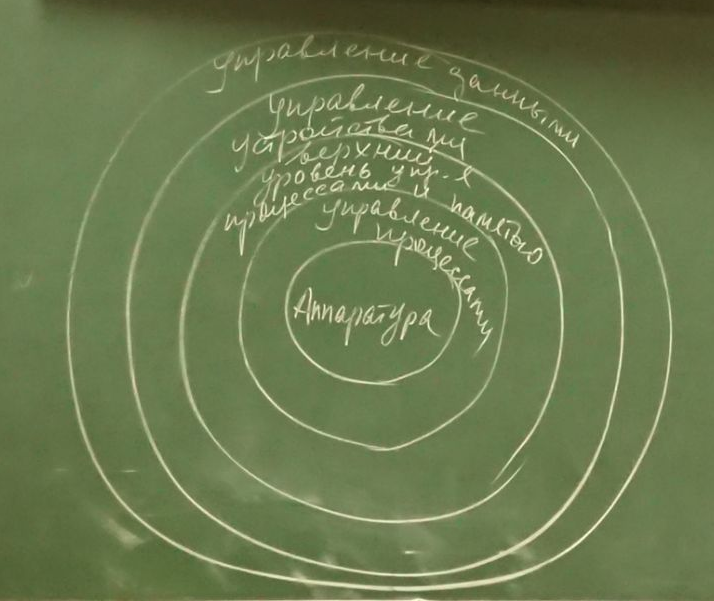 управление данными
управление
устройствами
верхний
уровень упр-я
процессами и памятью
управление
процессами
Аппаратура